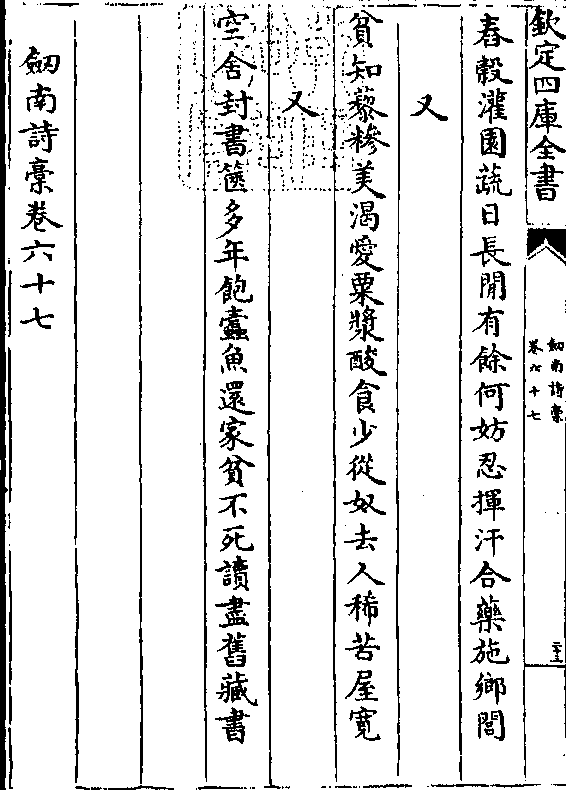 欽定四庫全書
劒南詩稾
卷六十七
舂穀灌園蔬日長閒有餘何妨忍揮汗合藥施鄉閭
又
貧知藜糝美渴愛粟漿酸食少從奴去人稀苦屋寛
又
空舍封書篋多年飽蠧魚還家貧不死讀盡舊藏書
劒南詩稾卷六十七